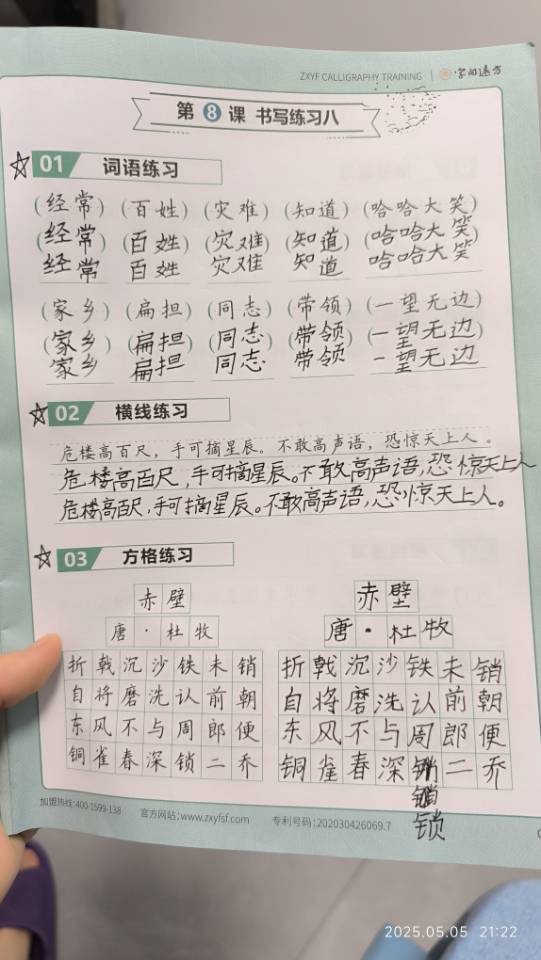 ZXYF CALLIGRAPHY TRAINING | 字间速方
第8课 书写练习八
01 词语练习
(经常) (百姓) (灾难) (知道) (哈哈大笑)
(经常) (百姓) (灾难) (知道) (哈哈大笑)
经常 百姓 灾难 知道 哈哈大笑
(家乡) (扁担) (同志) (带领) (一望无边)
(家乡) (扁担) (同志) (带领) (一望无边)
家乡 扁担 同志 带领 一望无边
02 横线练习
危楼高百尺，手可摘星辰。不敢高声语，恐惊天上人。
危楼高百尺,手可摘星辰。不敢高声语,恐惊天上人
危楼高百尺,手可摘星辰。不敢高声语,恐惊天上人。
03 方格练习
赤壁
唐·杜牧
折戟沉沙铁未销
自将磨洗认前朝
东风不与周郎便
铜雀春深锁二乔
赤壁
唐·杜牧
折戟沉沙铁未销
自将磨洗认前朝
东风不与周郎便
铜雀春深 二乔
锁
加盟热线:400-1599-138 官方网站:www.zxyfsf.com 专利号码:202030426069.7
2025.05.05 21:22